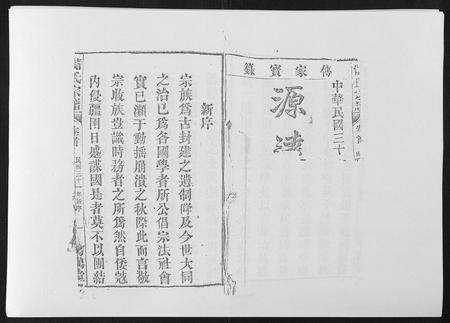 中華民國三十
傳家寶錄
源
新序
宗族爲古封建之遺制降及今世大同
之治已爲各國學者所公倡宗法社會
實已瀕于動搖崩潰之秋際此而言敬
宗收族豈識時務者之所爲然自倭寇
內侵疆圉日蹙謀國是者莫不以團結
氏宗譜